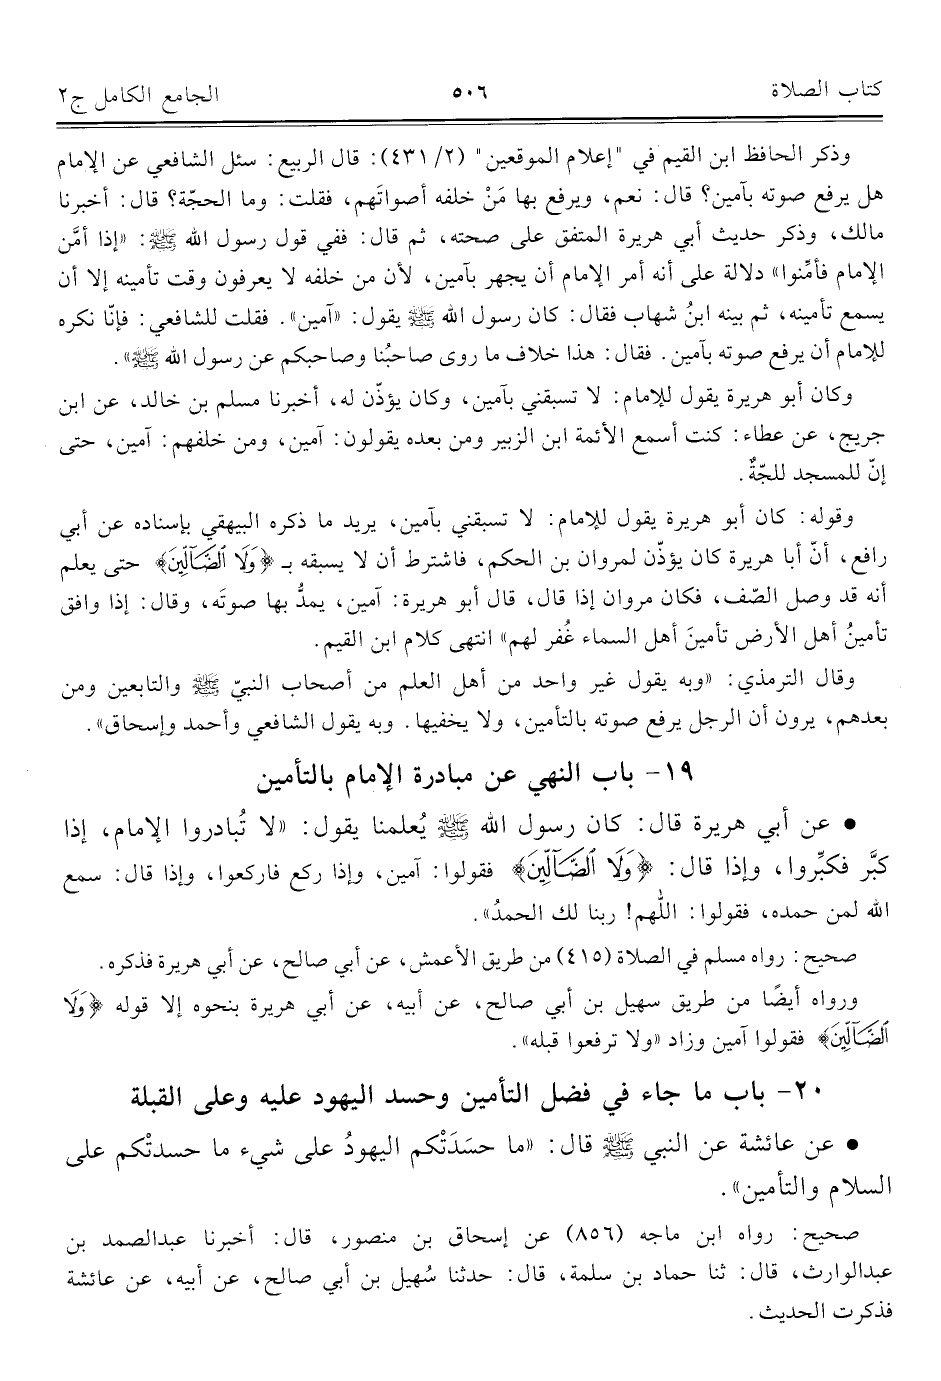 كتاب الصلاة ٥٠٦ الجامع الكامل ج٢
وذكر الحافظ ابن القيم في "إعلام الموقعين" (٢/ ٤٣١): قال الربيع: سئل الشافعي عن الإمام
هل يرفع صوته بآمين؟ قال: نعم، ويرفع بها مَنْ خلفه أصواتَهم، فقلت: وما الحجّة؟ قال: أخبرنا
مالك، وذكر حديث أبي هريرة المتفق على صحته، ثم قال: ففي قول رسول الله ﷺ: «إذا أمَّن
الإمام فأمِّنوا» دلالة على أنه أمر الإمام أن يجهر بآمين، لأن من خلفه لا يعرفون وقت تأمينه إلا أن
يسمع تأمينه، ثم بينه ابنُ شهاب فقال: كان رسول الله ﷺ يقول: «آمين». فقلت للشافعي: فإنّا نكره
للإمام أن يرفع صوته بآمين. فقال: هذا خلاف ما روى صاحبُنا وصاحبكم عن رسول الله ﷺ».
وكان أبو هريرة يقول للإمام: لا تسبقني بآمين، وكان يؤذّن له، أخبرنا مسلم بن خالد، عن ابن
جريج، عن عطاء: كنت أسمع الأئمة ابن الزبير ومن بعده يقولون: آمين، ومن خلفهم: آمين، حتى
إنّ للمسجد للجّةٌ.
وقوله: كان أبو هريرة يقول للإمام: لا تسبقني بآمين، يريد ما ذكره البيهقي بإسناده عن أبي
رافع، أنّ أبا هريرة كان يؤذّن لمروان بن الحكم، فاشترط أن لا يسبقه بـ ﴿وَلَا ٱلضَّآلِّينَ﴾ حتى يعلم
أنه قد وصل الصّف، فكان مروان إذا قال، قال أبو هريرة: آمين، يمدُّ بها صوتَه، وقال: إذا وافق
تأمينُ أهل الأرض تأمينَ أهل السماء غُفر لهم» انتهى كلام ابن القيم.
وقال الترمذي: «وبه يقول غير واحد من أهل العلم من أصحاب النبيّ ﷺ والتابعين ومن
بعدهم، يرون أن الرجل يرفع صوته بالتأمين، ولا يخفيها. وبه يقول الشافعي وأحمد وإسحاق».
١٩- باب النهي عن مبادرة الإمام بالتأمين
• عن أبي هريرة قال: كان رسول الله ﷺ يُعلمنا يقول: «لا تُبادروا الإمام، إذا
كبَّر فكبِّروا، وإذا قال: ﴿وَلَا ٱلضَّآلِّينَ﴾ فقولوا: آمين، وإذا ركع فاركعوا، وإذا قال: سمع
الله لمن حمده، فقولوا: اللّهم! ربنا لك الحمدُ».
صحيح: رواه مسلم في الصلاة (٤١٥) من طريق الأعمش، عن أبي صالح، عن أبي هريرة فذكره.
ورواه أيضًا من طريق سهيل بن أبي صالح، عن أبيه، عن أبي هريرة بنحوه إلا قوله ﴿وَلَا
ٱلضَّآلِّينَ﴾ فقولوا آمين وزاد «ولا ترفعوا قبله».
٢٠- باب ما جاء في فضل التأمين وحسد اليهود عليه وعلى القبلة
• عن عائشة عن النبي ﷺ قال: «ما حسَدَتْكم اليهودُ على شيء ما حسدتْكم على
السلام والتأمين».
صحيح: رواه ابن ماجه (٨٥٦) عن إسحاق بن منصور، قال: أخبرنا عبدالصمد بن
عبدالوارث، قال: ثنا حماد بن سلمة، قال: حدثنا سُهيل بن أبي صالح، عن أبيه، عن عائشة
فذكرت الحديث.